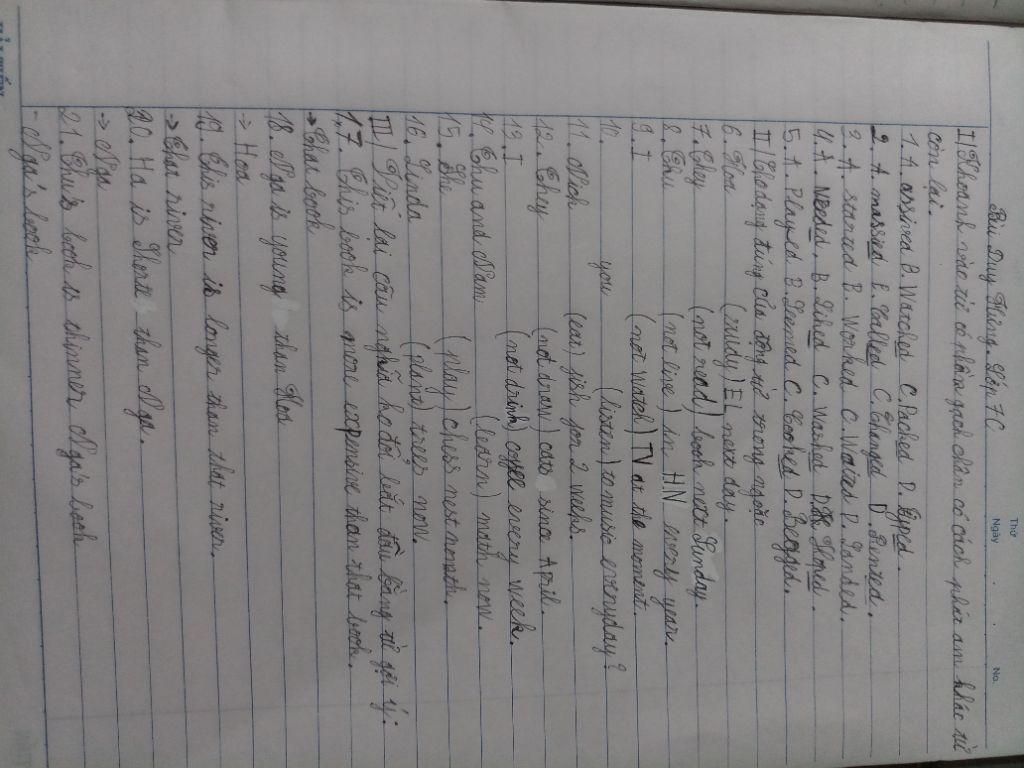 Thứ
Ngày No.
Bùi Duy Hùng. Lớp 7C
I/ Khoanh vào từ có phần gạch chân có cách phát âm khác từ
còn lại.
1. A. arrived B. Watched C. Packed D. Eyed.
2. A. married B. Called C. Changed D. Painted.
3. A. scared B. Worked C. Waited D. Landed.
4. A. Needed. B. Liked C. Washed D. Hoped.
5. A. Played B. Seemed C. Cooked D. Begged.
II/ Chia dạng đúng của động từ trong ngoặc
6. Hoa (study) EL next day.
7. They (not read) book next Sunday.
8. Thu (not live) in HN every year.
9. I (not watch) TV at the moment.
10. you (listen) to music everyday?
11. Nick (eat) fish for 2 weeks.
12. They (not draw) cats since April.
13. I (not drink) coffee every week.
14. Thu and Nam (learn) math now.
15. He (play) chess next month.
16. Linda (plant) trees now.
III/ Viết lại câu nghĩa ko đổi bắt đầu bằng từ gợi ý.
17. This book is more expensive than that book.
→ That book
18. Nga is young than Hoa
→ Hoa
19. This river is longer than that river.
→ That river
20. Ha is Short than Nga.
→ Nga
21. Thu's book is thinner Nga's book
- Nga's book